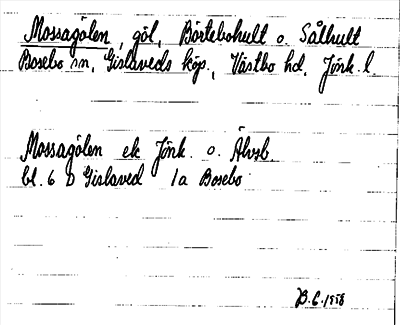 Mossagölen, göl, Börtebohult o. Sålhult
Bosebo sn, Gislaveds köp., Västbo hd, Jönk. l.
Mossagölen ek Jönk. o. Älvsb.
bl. 6 D Gislaved 1a Bosebo
B.C. 1958